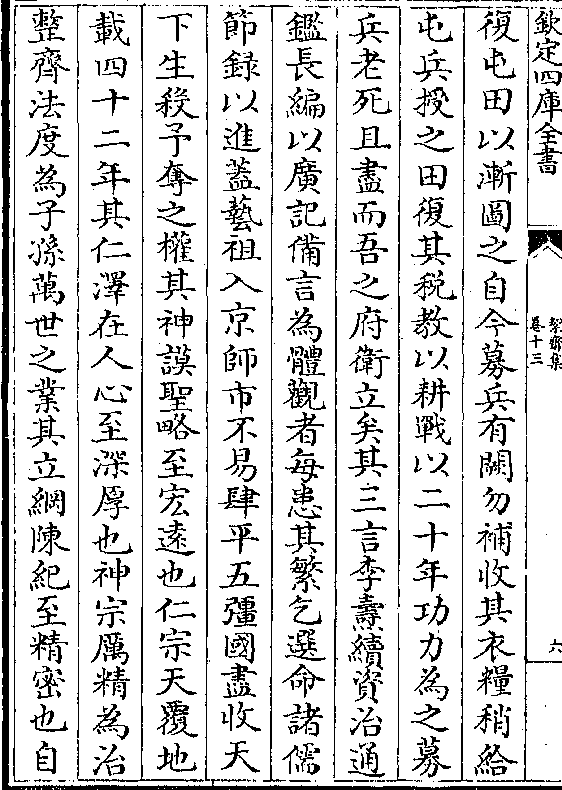 欽定四庫全書
絜齋集
卷十三
六
復屯田以漸圖之自今募兵有闕勿補收其衣糧稍給
屯兵授之田復其税教以耕戰以二十年功力為之募
兵老死且盡而吾之府衛立矣其三言李燾續資治通
鑑長編以廣記備言為體觀者每患其繁乞選命諸儒
節録以進蓋藝祖入京師市不易肆平五彊國盡收天
下生殺予奪之權其神謨聖略至宏逺也仁宗天覆地
載四十二年其仁澤在人心至深厚也神宗厲精為治
整齊法度為子孫萬世之業其立綱陳紀至精密也自